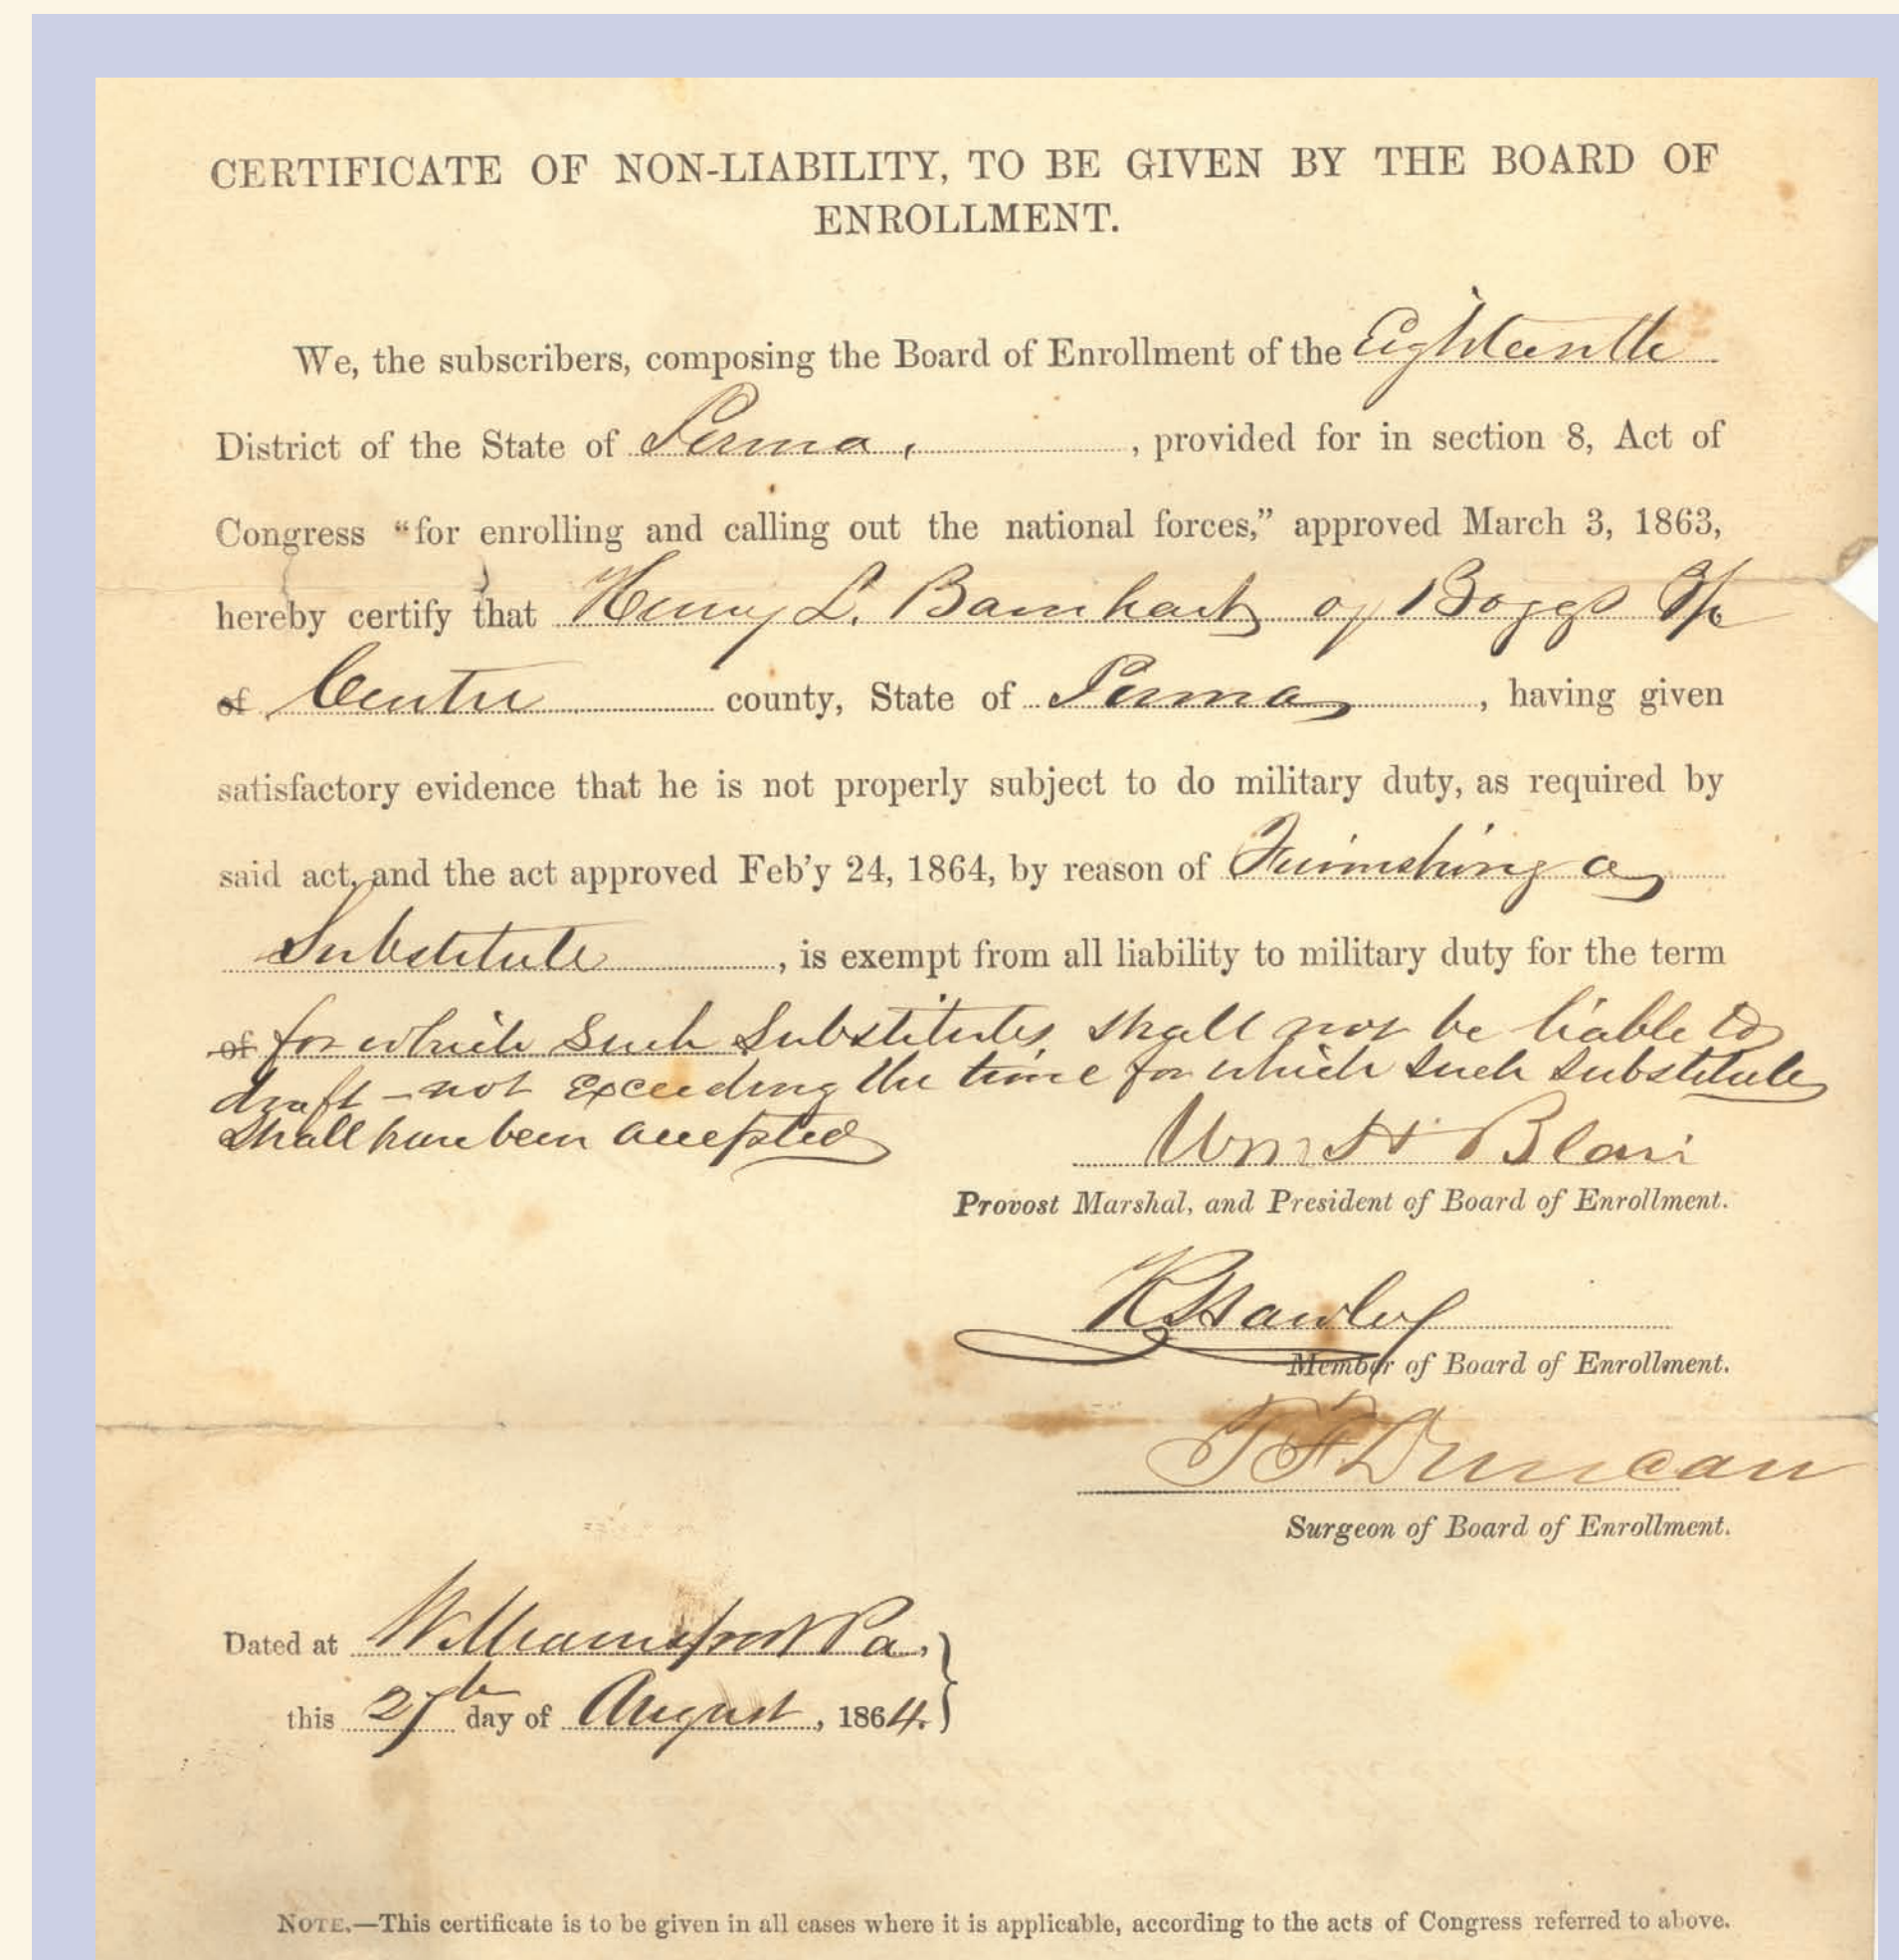 CERTIFICATE OF NON-LIABILITY, TO BE GIVEN BY THE BOARD OF
ENROLLMENT.
We, the subscribers, composing the Board of Enrollment of the Eighteenth
District of the State of Penna, , provided for in section 8, Act of
Congress “for enrolling and calling out the national forces,” approved March 3, 1863,
hereby certify that Henry L. Barnhart of Boggs Tp
of Centre county, State of Penna , having given
satisfactory evidence that he is not properly subject to do military duty, as required by
said act, and the act approved Feb'y 24, 1864, by reason of Furnishing a
Substitute , is exempt from all liability to military duty for the term
of for which such substitute shall not be liable to
draft – not exceeding the time for which such substitute
shall have been accepted
Wm H Blair
Provost Marshal, and President of Board of Enrollment.
Hawley
Member of Board of Enrollment.
Duncan
Surgeon of Board of Enrollment.
Dated at Williamsport Pa.,
this 27th day of August, 1864.
NOTE.—This certificate is to be given in all cases where it is applicable, according to the acts of Congress referred to above.